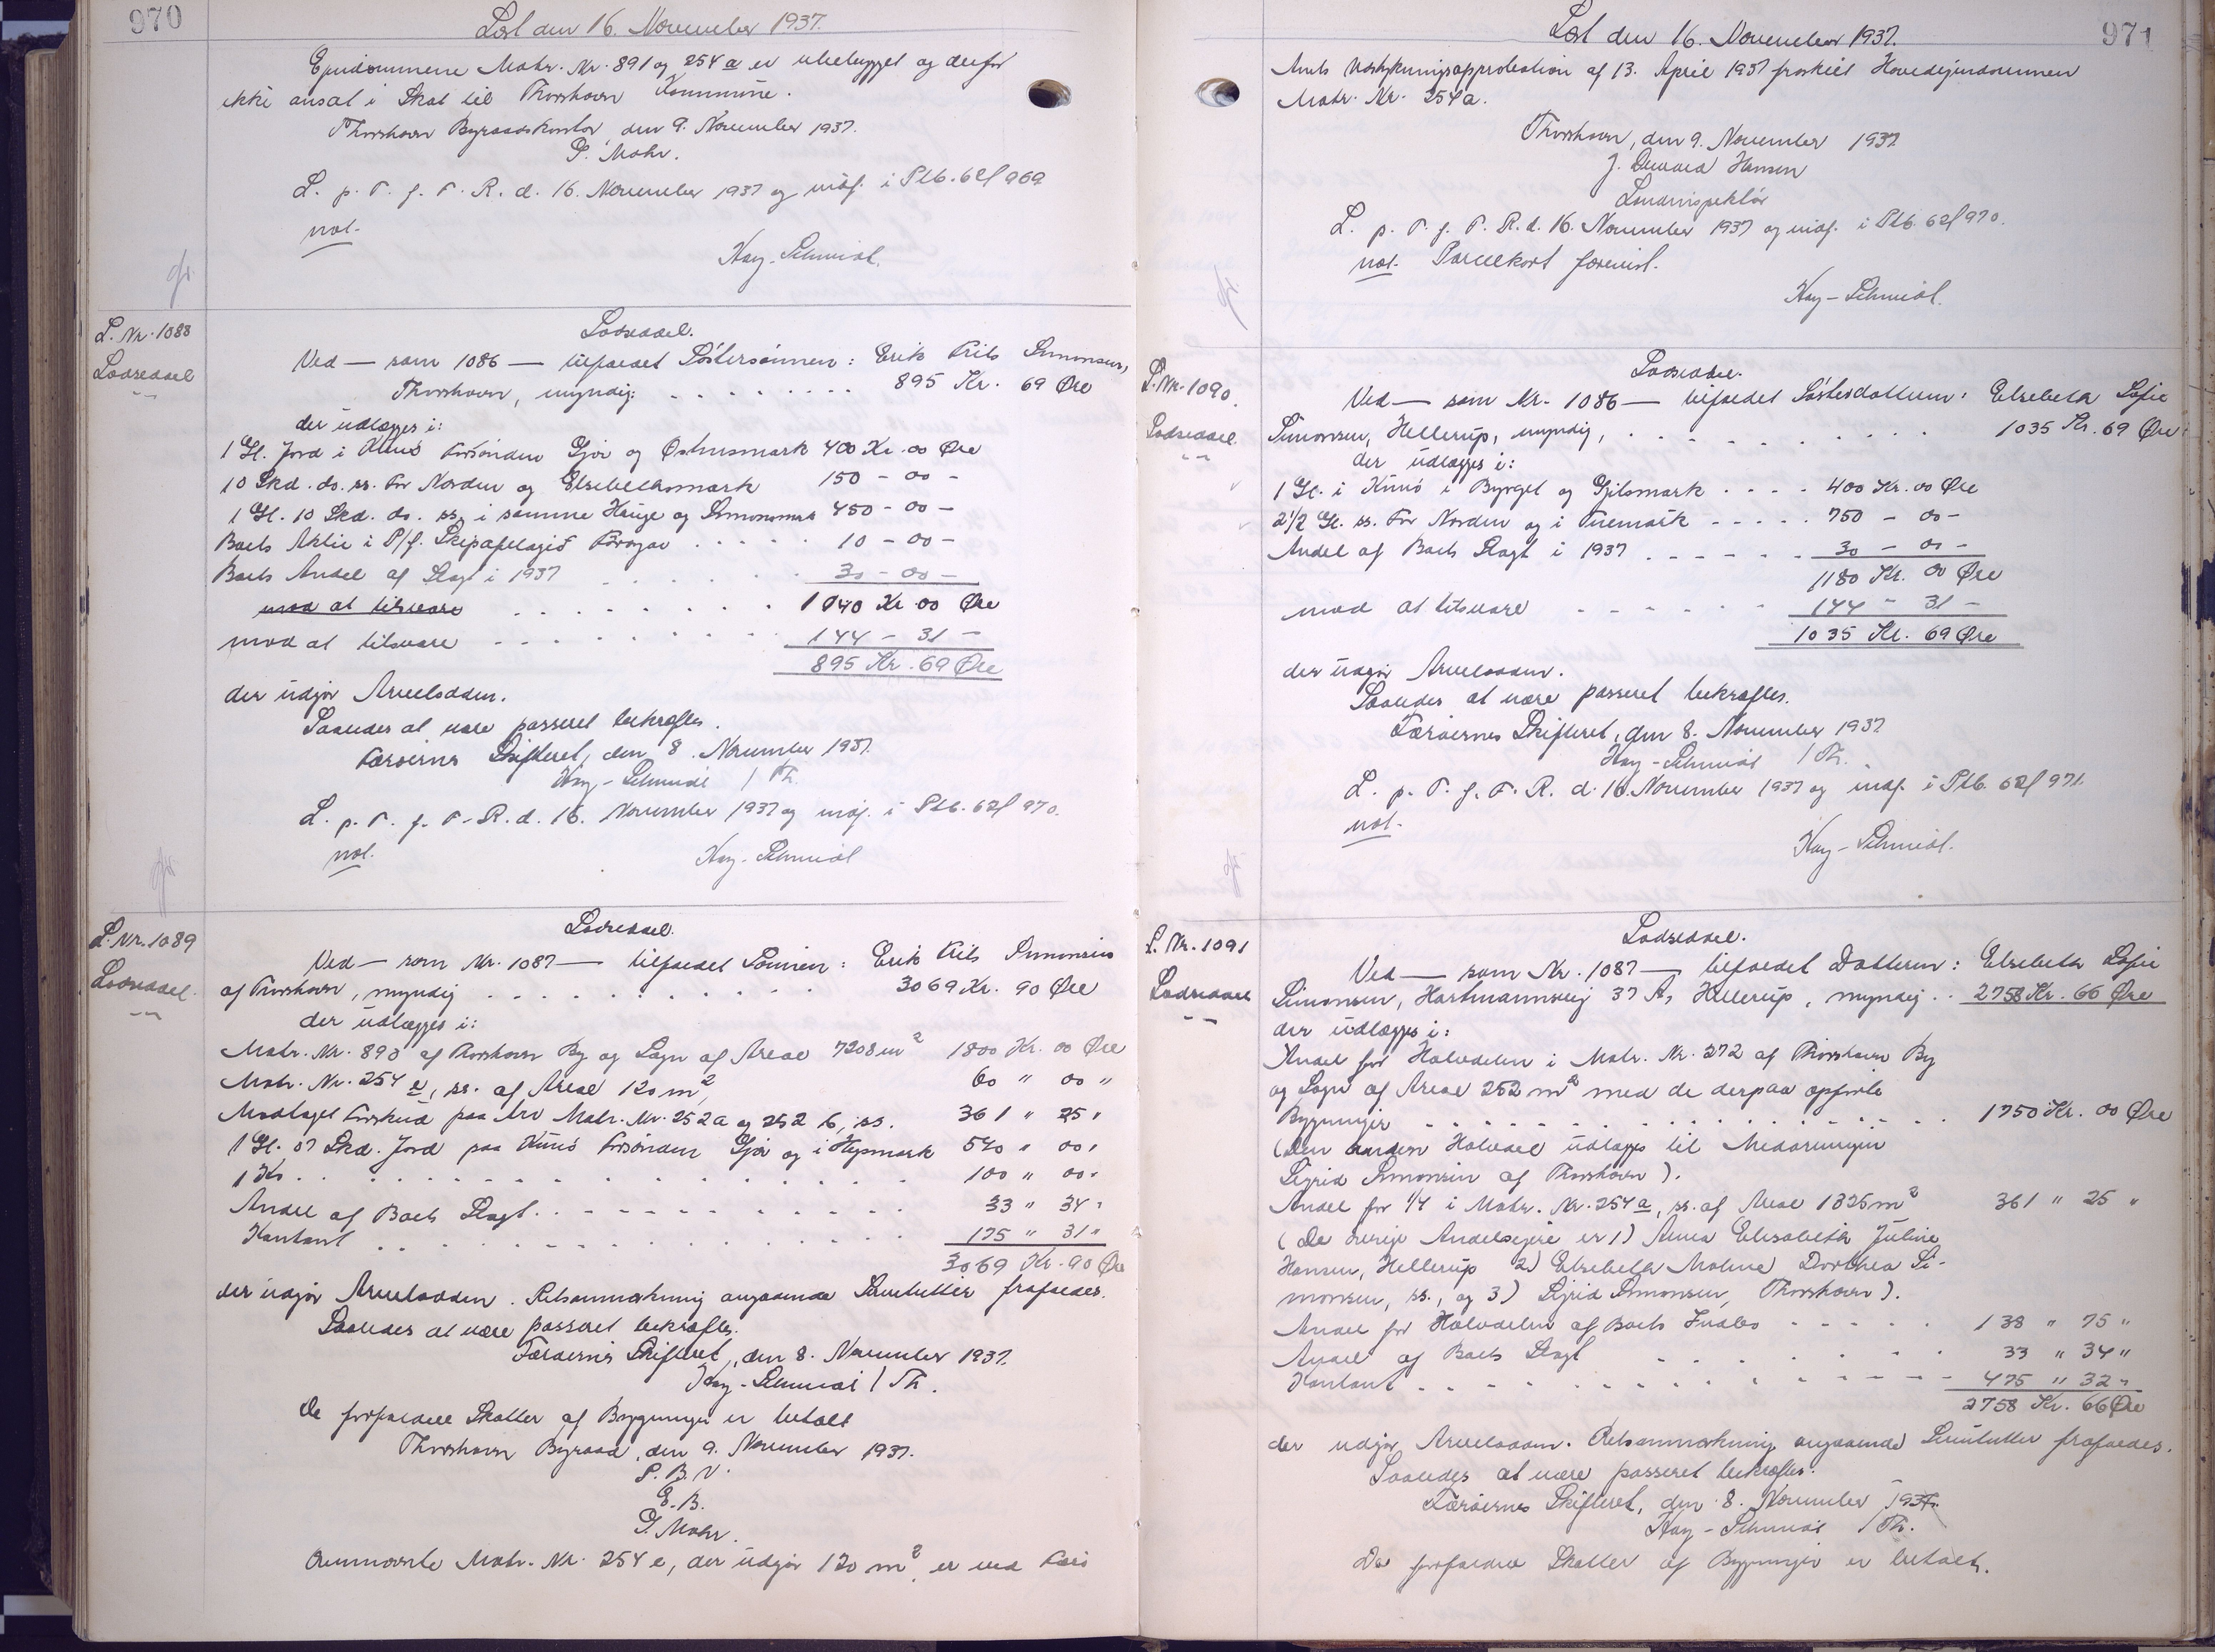 970
Læst den 16. November 1937.
Ejendommene Matr. Nr. 891 og 254 a er ubebygget og derfor
ikke ansat i Skat til Thorshavn Kommune.
Thorshavn Byraadskontor, den 9. November 1937.
P. Mohr.
L. p. T. f. F. R. d. 16. November 1937 og indf. i Ptb. 62 f 969
not.
Kay-Schmidt.
L. Nr. 1088
Lodseddel
Lodseddel.
Ved — som 1086 — tilfaldt Søstersønnen: Erik Nils Simonsen,
Thorshavn, myndig: . . . . . . . . 895 Kr. 69 Øre
der udlægges i:
1 Gl. Jord i Kunø Forsønden Gjov og Østhusmark 400 Kr. 00 Øre
10 Skd. do. ss. For Norden og Elsebethsmark 150 - 00 -
1 Gl. 10 Skd. do. ss. i samme Hauge og Simonsmark 450 - 00 -
Boets Aktie i P/f. Skipafelagið Föroyar . . . . . 10 - 00 -
Boets Andel af Slagt i 1937 . . . . . . 30 - 00 -
mod at tilsvare . . . . . . . . 1040 Kr. 00 Øre
mod at tilsvare . . . . . . . . 144 - 31 -
895 Kr. 69 Øre
der udgør Arvelodden.
Saaledes at være passeret bekræftes.
Færøernes Skifteret, den 8. November 1937.
Kay-Schmidt / Th.
L. p. T. f. F. R. d. 16. November 1937 og indf. i Ptb. 62 f 970.
not.
Kay-Schmidt
L. Nr. 1089
Lodseddel.
Lodseddel.
Ved — som Nr. 1087 — tilfaldet Sønnen: Erik Nils Simonsen
af Thorshavn, myndig . . . . . . . . . . 3069 Kr. 90 Øre
der udlægges i:
Matr. Nr. 890 af Thorshavn By og Sogn af Areal 7208 m² 1800 Kr. 00 Øre
Matr. Nr. 254 e, ss. af Areal 120 m², 60 " 00 "
Modtaget Forskud paa Arv Matr. Nr. 252 a og 252 b, ss. 361 " 25 "
1 Gl. 07 Skd. Jord paa Kunø Forsønden Gjov og i Hegsmark 540 " 00 "
1 Ko . . . . . . . . . . . . . . . 100 " 00 "
Andel af Boets Slagt . . . . . . . . . . . 33 " 34 "
Kontant . . . . . . . . . . . . . . 175 " 31 "
3069 Kr. 90 Øre
der udgør Arvelodden. Retsanmærkning angaaende Servitutter frafaldes.
Saaledes at være passeret bekræftes.
Færøernes Skifteret, den 8. November 1937.
Kay-Schmidt / Th.
De forfaldne Skatter af Bygninger er betalt
Thorshavn Byraad, den 9. November 1937.
P. B. V.
E. B.
P. Mohr.
Omnævnte Matr. Nr. 254 e, der udgør 120 m², er ved
971
Læst den 16. November 1937.
Amts Udstykningsapprobation af 13. April 1937 fraskilt Hovedejendommen
Matr. Nr. 254 a.
Thorshavn, den 9. November 1937
J. Hansen
Landinspektør
L. p. T. f. F. R. d. 16. November 1937 og indf. i Ptb. 62 f 970.
not. Parcelkort forevist.
Kay-Schmidt.
L. Nr. 1090.
Lodseddel.
Lodseddel.
Ved — som Nr. 1086 — tilfaldet Søsterdatteren: Elsebeth Sofie
Simonsen, Hellerup, myndig, . . . . . . . . . 1035 Kr. 69 Øre
der udlægges i:
1 Gl. i Kunø i Byrget og Gjilsmark . . . . 400 Kr. 00 Øre
2 1/2 Gl. ss. For Norden og i Tuemark . . . . . 750 - 00 -
Andel af Boets Slagt i 1937 . . . . . . 30 - 00 -
1180 Kr. 00 Øre
mod at tilsvare . . . . . . 144 - 31 -
1035 Kr. 69 Øre
der udgør Arvelodden.
Saaledes at være passeret bekræftes.
Færøernes Skifteret, den 8. November 1937
Kay-Schmidt / Th.
L. p. T. f. F. R. d. 16. November 1937 og indf. i Ptb. 62 f 971.
not.
Kay-Schmidt.
L. Nr. 1091
Lodseddel
Lodseddel.
Ved — som Nr. 1087 — tilfaldet Datteren: Elsebeth Sofie
Simonsen, Hartmannsvej 37 A, Hellerup, myndig . . 2758 Kr. 66 Øre
der udlægges i:
Andel for Halvdelen i Matr. Nr. 272 af Thorshavn By
og Sogn af Areal 252 m² med de derpaa opførte
Bygninger . . . . . . . . . . . . . . . 1750 Kr. 00 Øre
(Den anden Halvdel udlægges til Medarvingen
Sigrid Simonsen af Thorshavn).
Andel for 1/4 i Matr. Nr. 254 a, ss. af Areal 1325 m² 361 " 25 "
(De øvrige Andelsejere er 1) Anna Elisabeth Juline
Hansen, Hellerup 2) Elsebeth Malene Dorthea Si-
monsen, ss., og 3) Sigrid Simonsen, Thorshavn).
Andel for Halvdelen af Boets Indbo . . . . . 138 " 75 "
Andel af Boets Slagt . . . . . . . 33 " 34 "
Kontant . . . . . . . . . . . . . 475 " 32 "
2758 Kr. 66 Øre
der udgør Arvelodden. Retsanmærkning angaaende Servitutter frafaldes.
Saaledes at være passeret bekræftes.
Færøernes Skifteret, den 8. November 1937.
Kay-Schmidt / Th.
De forfaldne Skatter af Bygninger er betalt.